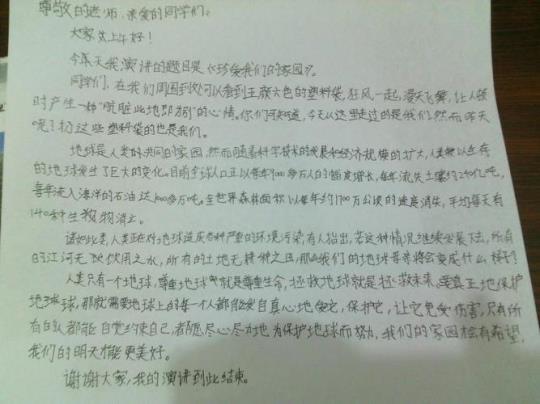 尊敬的老师,亲爱的同学们:
大家上午好!
今天我演讲的题目是《珍爱我们的家园》。
同学们,在我们周围到处可以看到五颜六色的塑料袋,狂风一起,漫天飞舞,让人顿
时产生一种"肮脏此地即为"的心情。你们可知道,今天从这里走过的是我们,然而昨天
呢?扔这些塑料袋的也是我们。
地球是人类的共同的家园,然而随着科学技术的发展和经济规模的扩大,人类赖以生存
的地球发生了巨大的变化。目前全球人口正以每年900多万人的幅度增长,每年流失土壤约240亿吨,
每年流入海洋的石油达1000多万吨。全世界森林面积以每年约1700万公顷的速度消失,平均每天有
140种生物消亡。
诸如此类,人类正在对地球造成各种严重的环境污染,有人指出,若这种情况继续发展下去,所有
的江河无可饮用之水,所有的土地无耕种之田,那么我们的地球母亲将会变成什么样子?
人类只有一个地球,尊重地球就是尊重生命,拯救地球就是拯救未来,要真正地保护
地球,那就需要地球上的每一个人都能发自真心地爱它,保护它,让它免受伤害,只有所
有的人都能自觉约束自己,都能尽心尽力地为保护地球而努力,我们的家园才会有希望,
我们的明天才能更美好。
谢谢大家,我的演讲到此结束。